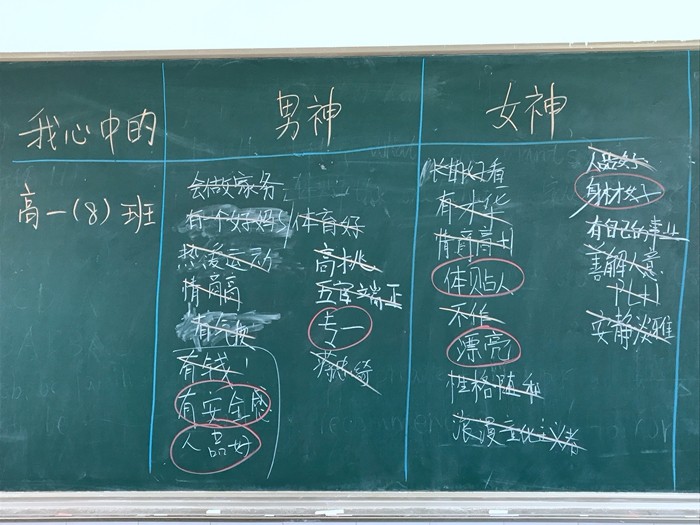 我心中的
高一(8)班
男神
会做家务
有一个好妈妈
热爱运动
情商高
有气
有钱
有安全感
人品好
体育好
高挑
五官端正
专一
女神
长相好看
有才华
情商高
体贴人
不作
漂亮
性格随和
浪漫主义者
人品好
身材好
有自己的事业
善解人意
安静淡雅